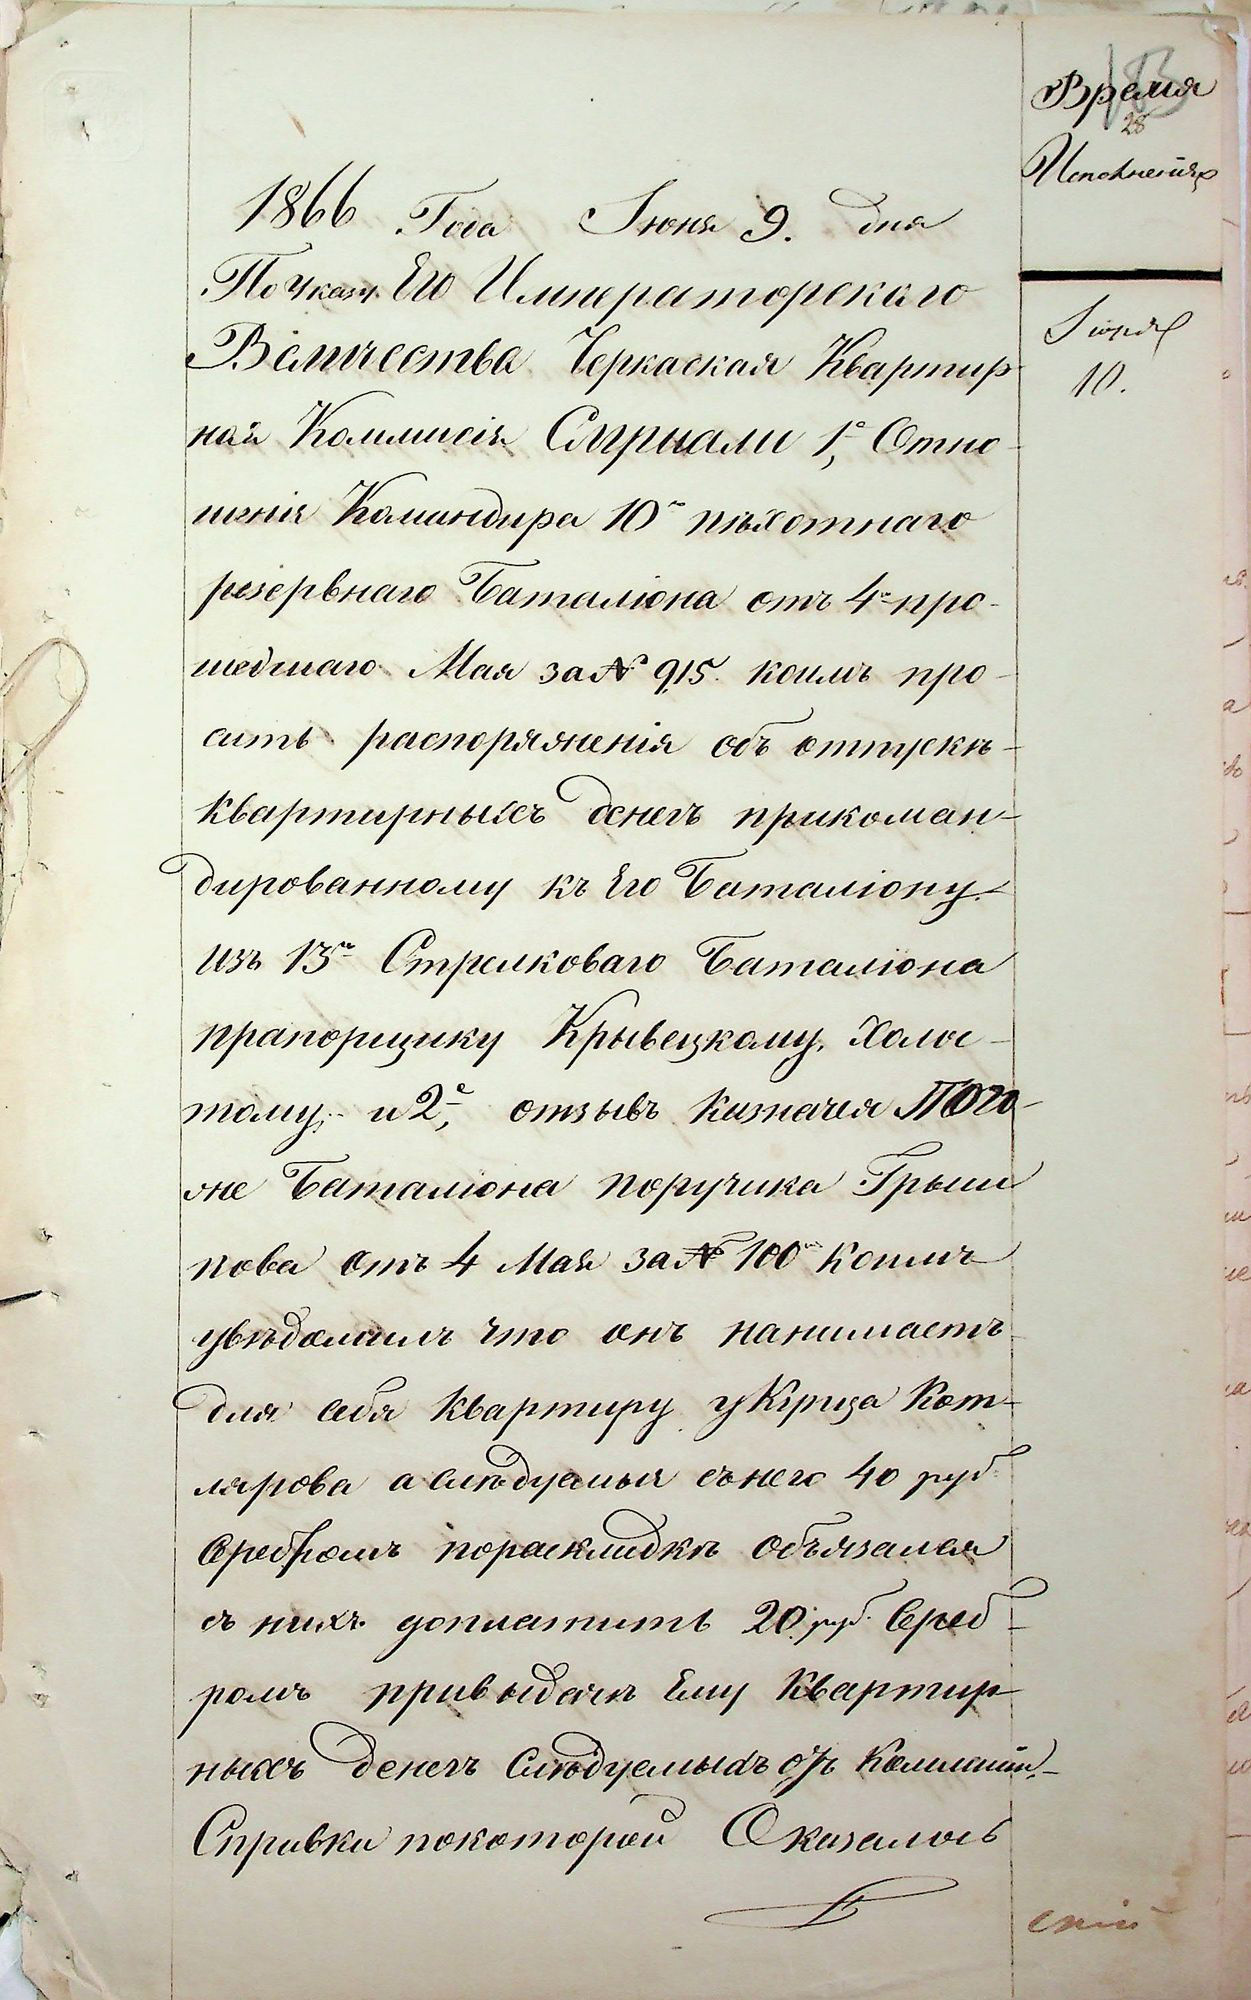 Время
28
Исполненія
1866 Года Іюня 9. дня
По Указу Его Императорскаго
Величества Черкаская Квартир
ная Коммисія Слушали 1е, Отно-
шенія Командира 10го пѣхотнаго
резервнаго Баталіона отъ 4го про-
шедшаго Мая за № 915. коимъ про-
ситъ распоряженія объ отпускѣ-
квартирныхъ денегъ прикоман-
дированному къ Его Баталіону
изъ 13го Стрелковаго Баталіона
прапорщику Крывецкому, Холос-
тому, и 2е, отзывъ Казначея Того-
же Баталіона поручика
нова отъ 4 Мая за № 100м коимъ
увѣдомилъ что онъ нанимаетъ
для себя квартиру у Кот-
лярова а слѣдуемыя съ него 40 руб.
Сребромъ пораскладкѣ объязался
съ нихъ доплатить 20 руб. Среб-
ромъ привыдачѣ Ему Квартир
ныхъ денегъ Слѣдуемыхъ отъ Коммисіи,-
Справки покоторой Оказалось
Іюня
10.